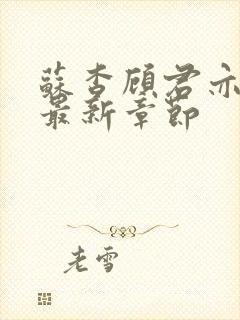 蘇杏顧君亦
最新章節
老雪